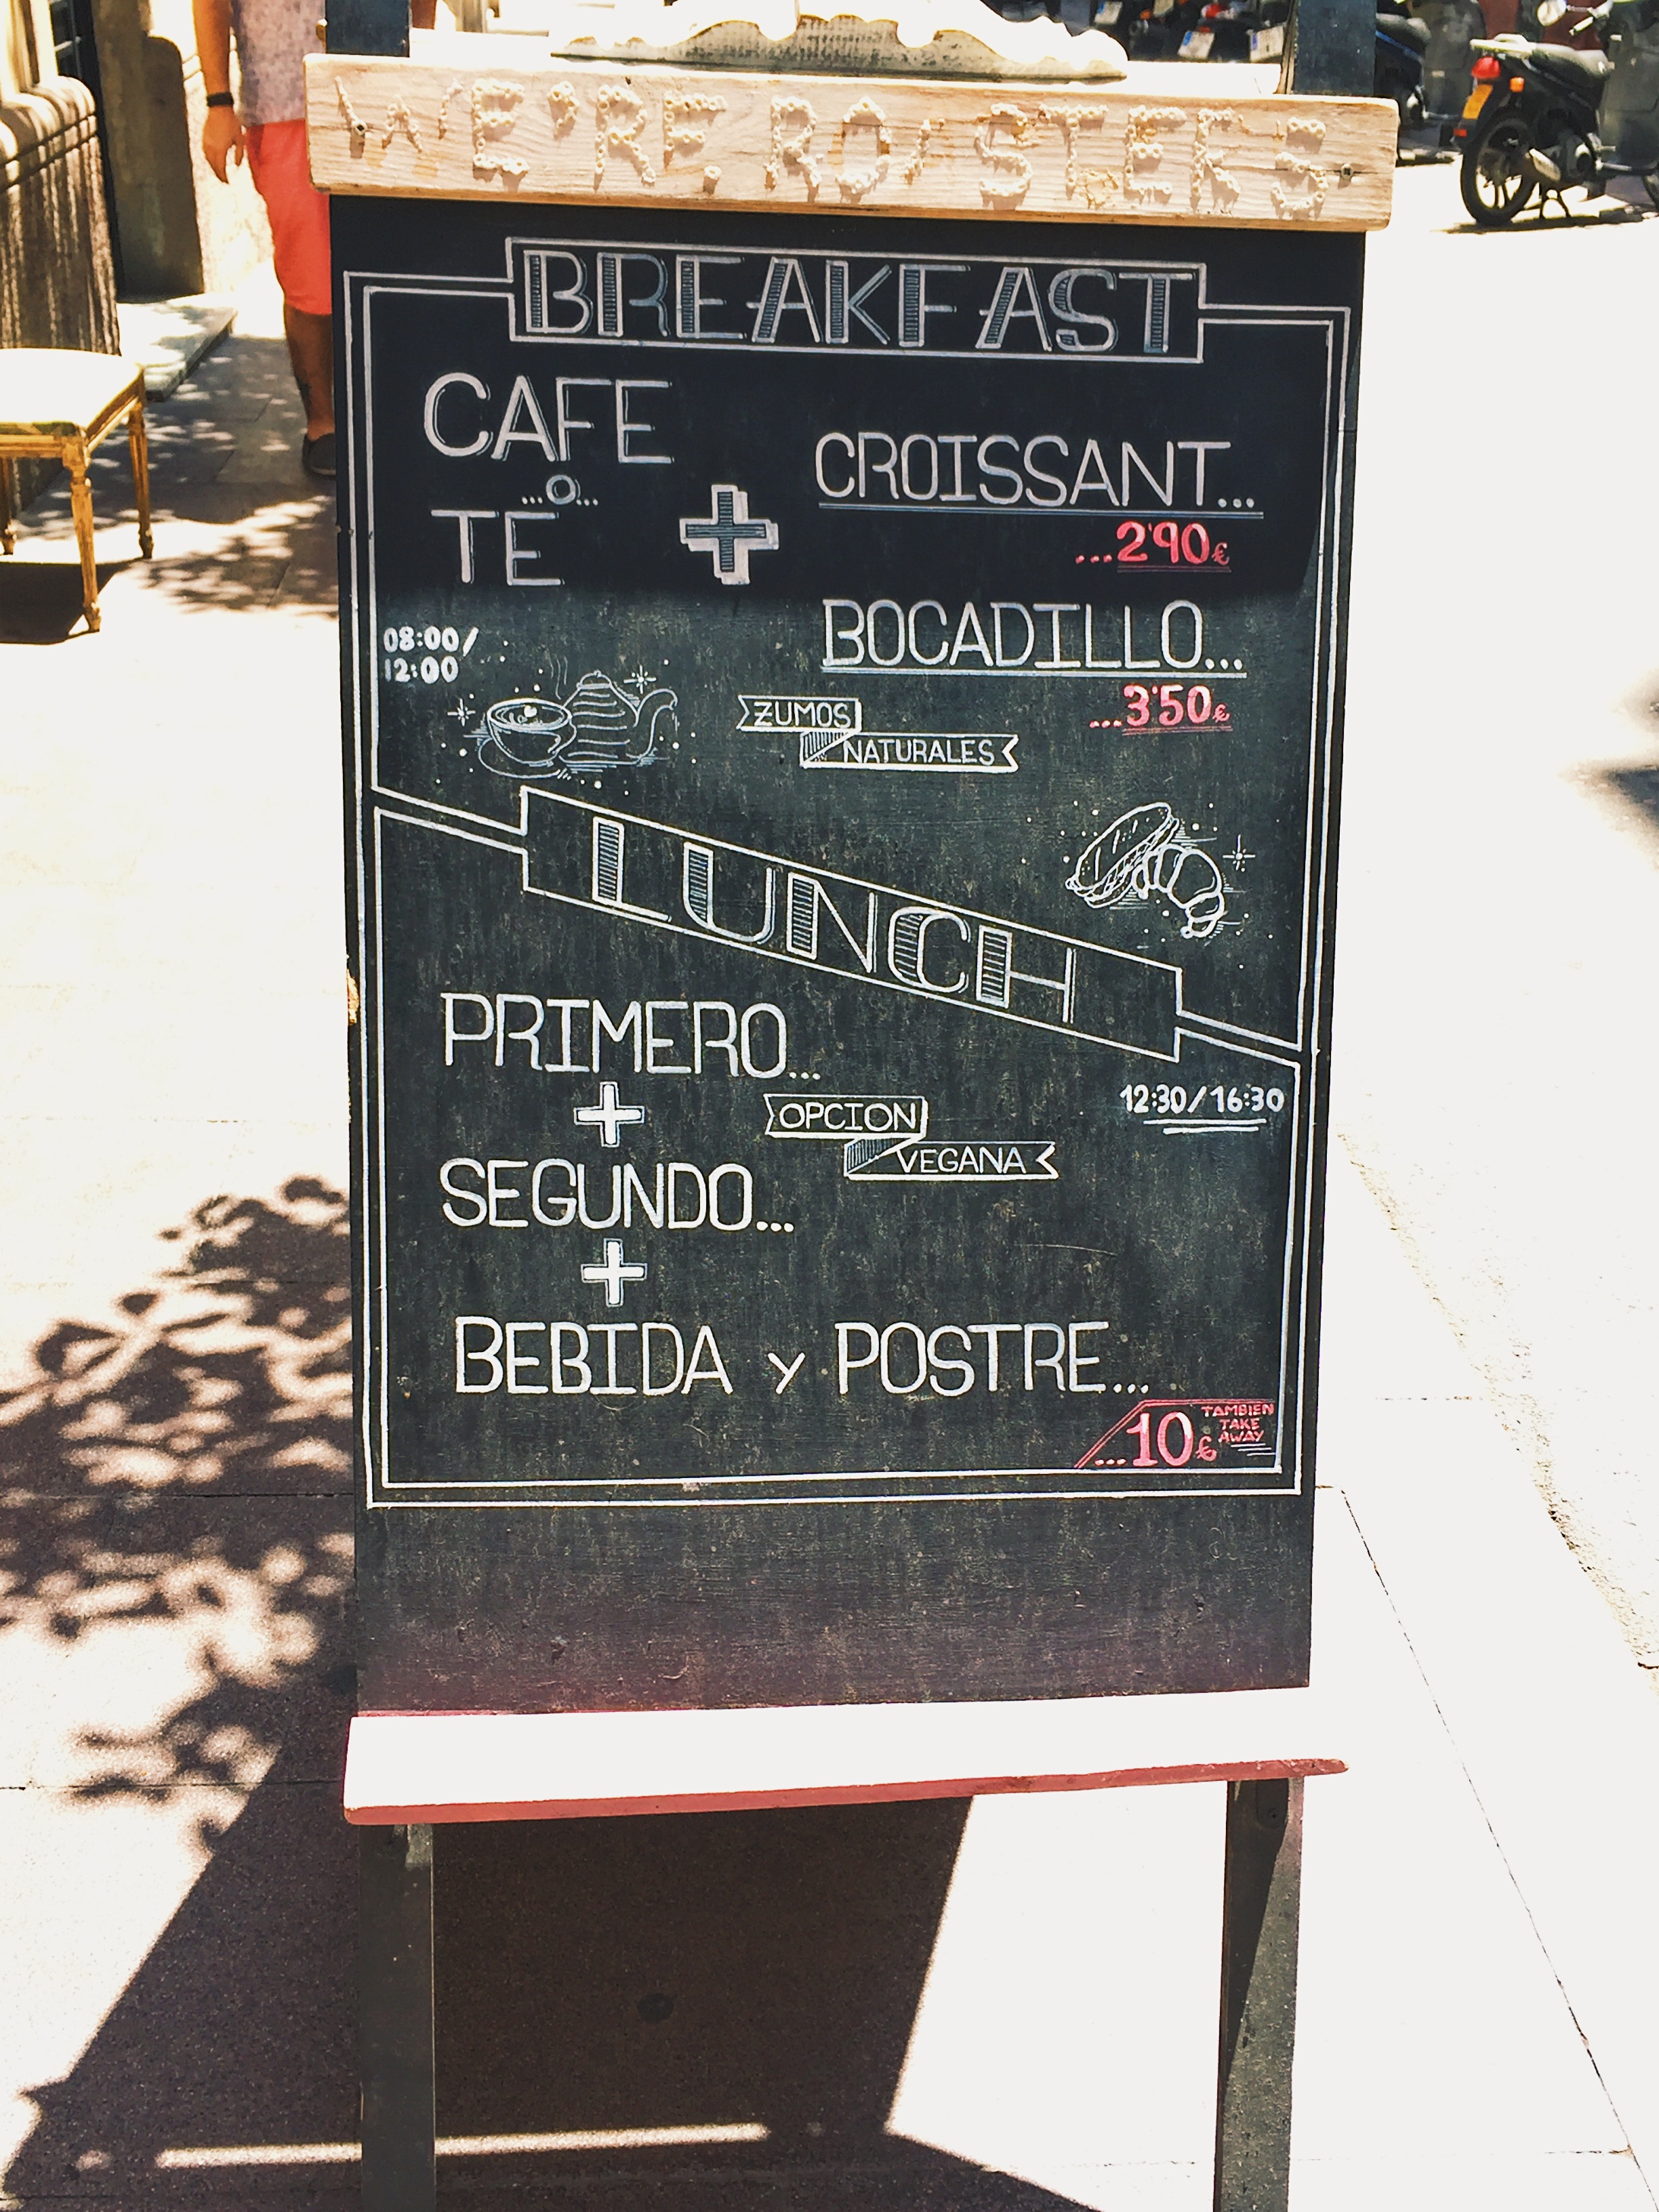 WE'RE ROASTERS
BREAKFAST
CAFE
...O...
TE
+
CROISSANT...
...2'90€
BOCADILLO...
...3'50€
08:00/
12:00
ZUMOS
NATURALES
LUNCH
12:30/16:30
PRIMERO...
+
OPCION
VEGANA
SEGUNDO...
+
BEBIDA Y POSTRE...
...10€
TAMBIEN
TAKE
AWAY